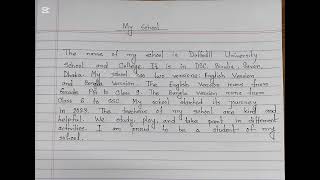 My School
The name of my school is Daffodil University
School and College. It is in DSC, Birulia, Savar,
Dhaka. My school has two versions: English Version
and Bangla Version. The English Version runs from
Grade PG to Class 9. The Bangla Version runs from
Class 6 to SSC. My school started its journey
in 2023. The teachers of my school are kind and
helpful. We study, play, and take part in different
activities. I am proud to be a student of my
school.